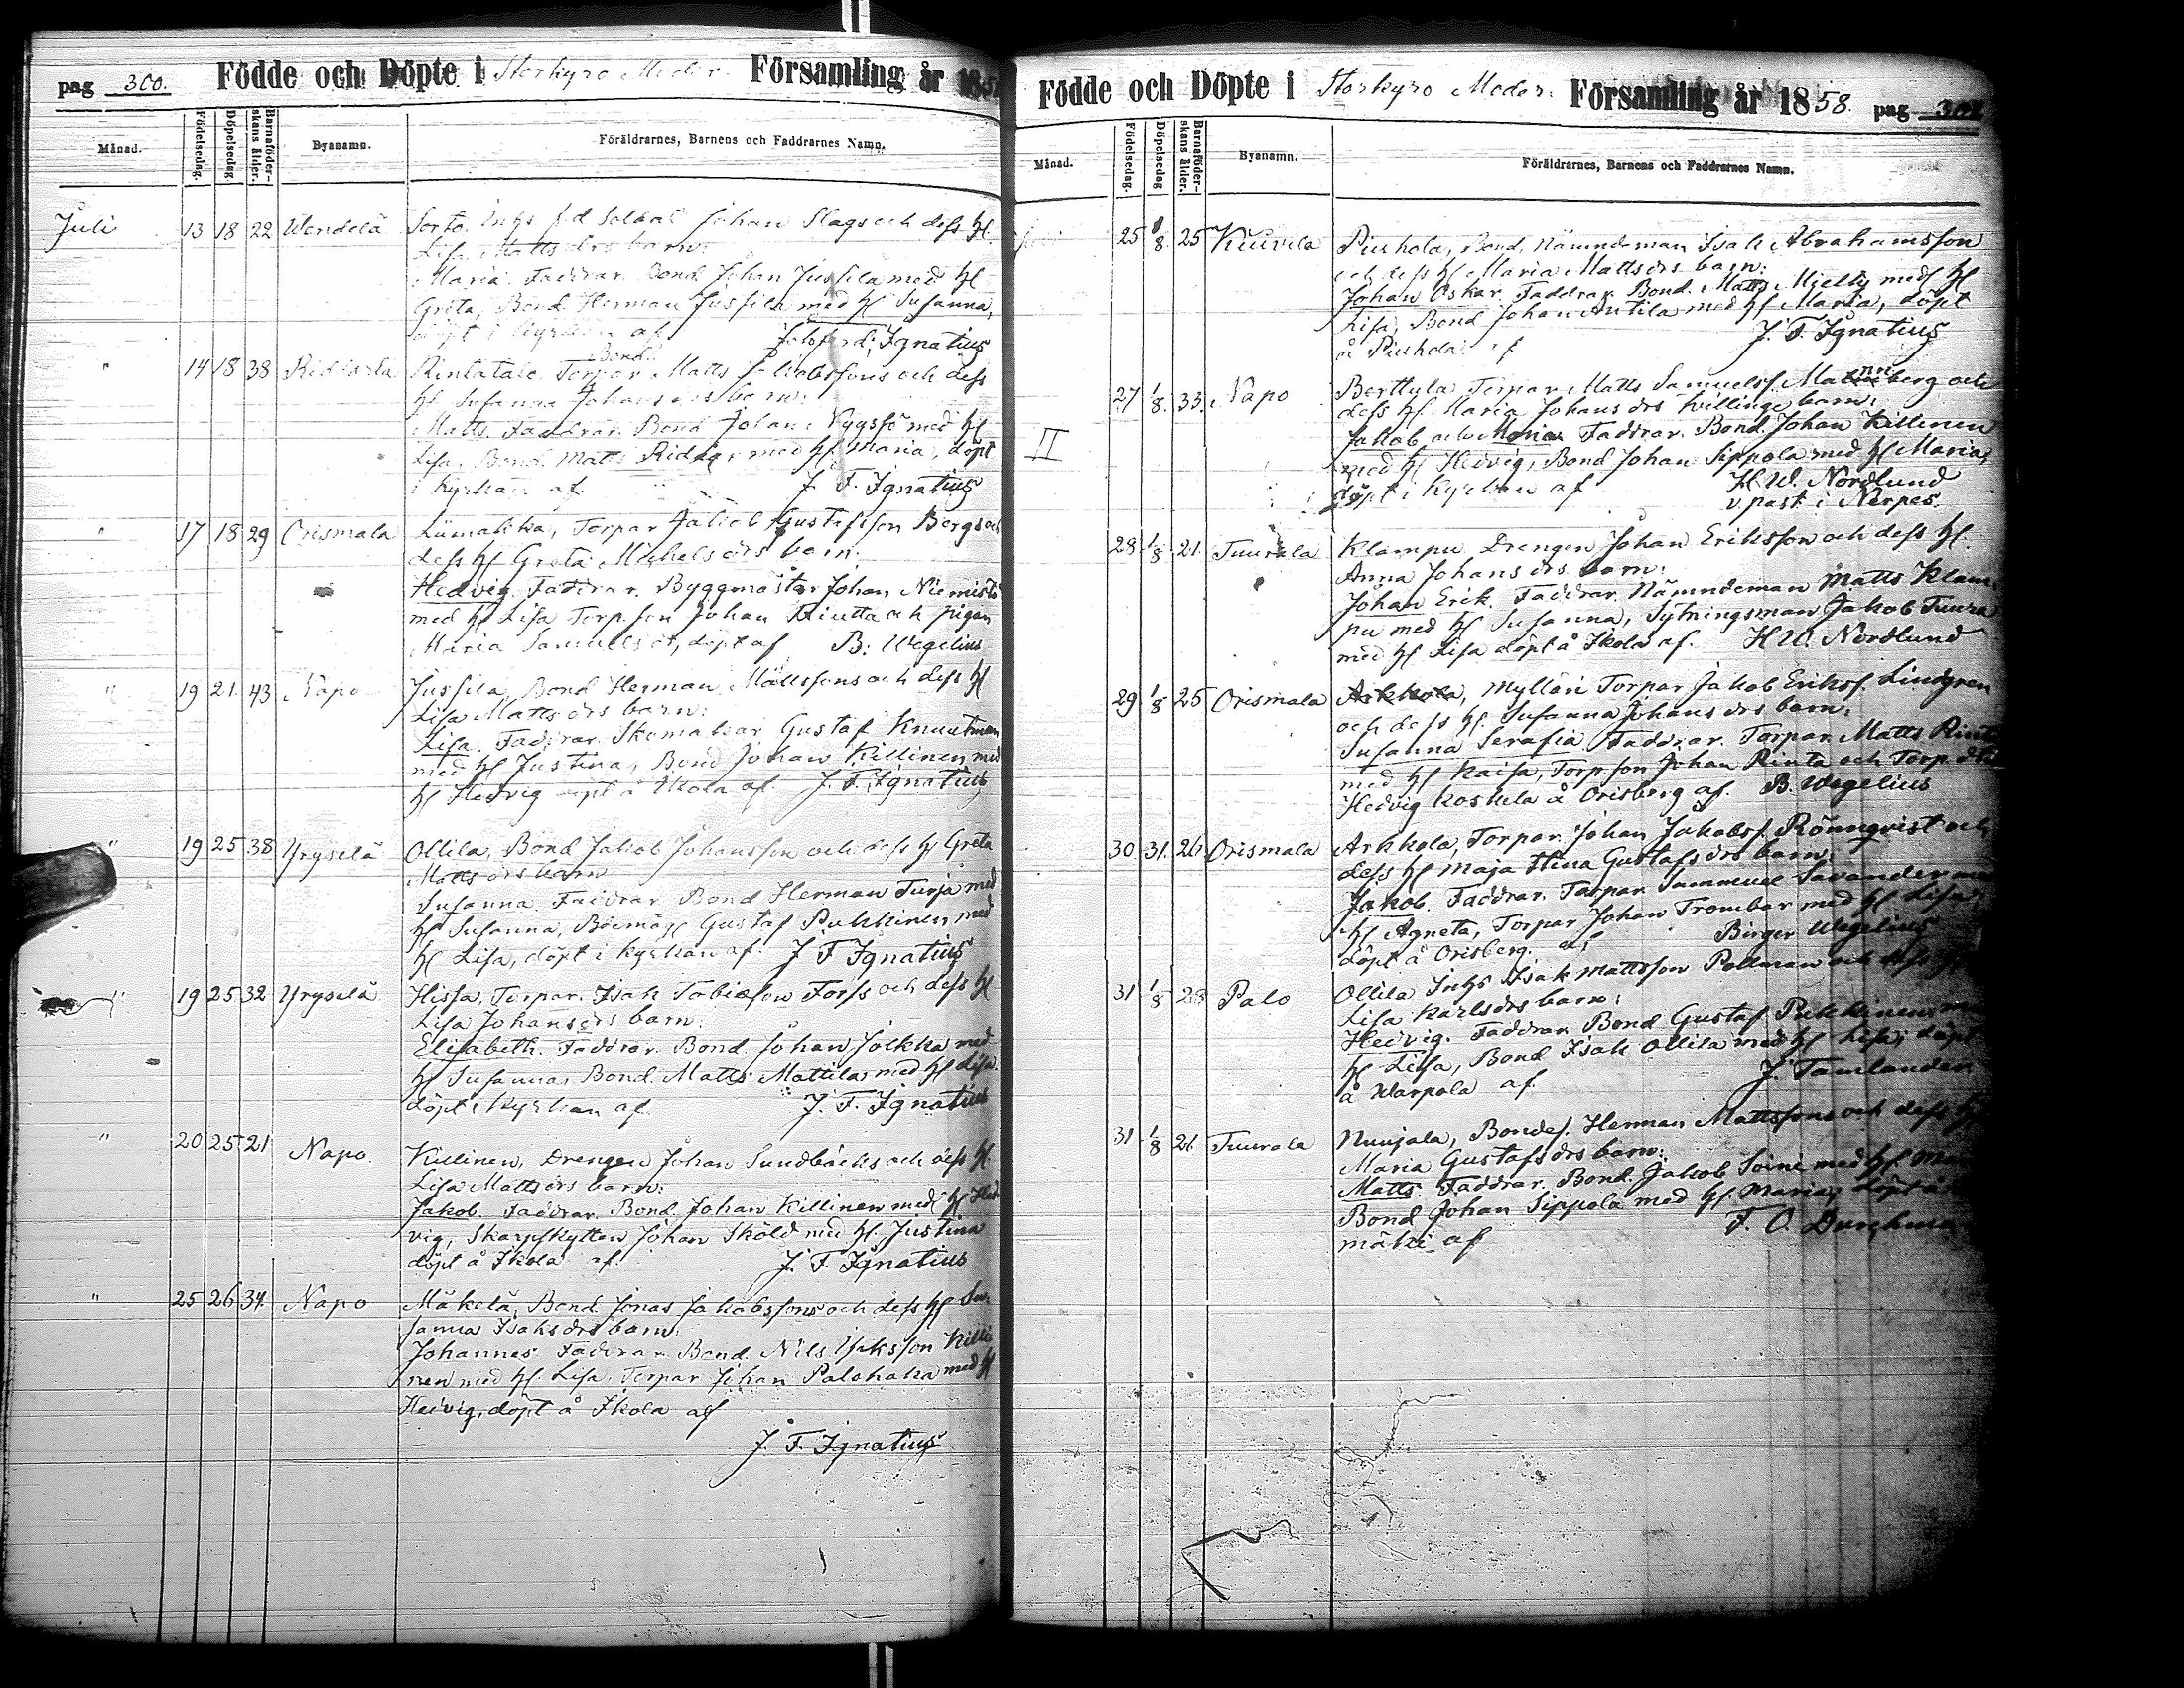 pag 300. Födde och Döpte i Storkyro Moder Församling år 1858
Månad. Födelsedag. Döpelsedag. Barnaföderskans ålder. Byanamn. Föräldrarnes, Barnens och Faddrarnes Namn.
Juli 13 18 22 Wendelä Sorto Inhs f.d. Soldat Johan Slags och dess H.
Lisa Mattsdrs barn:
Maria. Faddrar. Bond. Johan Jussila med H
Greta, Bond. Herman Jussila med H Susanna,
döpt i Kyrkan af Joh. Ferd. Ignatius
" 14 18 38 Rintatalo Bond. Torpar Matts Jakobssons och dess
H Susanna Johansdrs barn:
Matts. Faddrar. Bond Johan med H
Lisa, Bond. Matts med H. Maria, döpt
i Kyrkan af. J. F. Ignatius
" 17 18 29 Orismala Liimakka, Torpar Jakob Gustafsson Bergs och
dess H Greta Michelsdrs barn:
Hedvig. Faddrar. Byggmästar Johan Niemistö
med H Lisa Torp.son Johan Rintta och pigan
Maria Samuelsdr, döpt af B: Wegelius
" 19 21 43 Napo Jussila, Bond Herman Mattssons och dess H
Lisa Mattsdrs barn:
Lisa. Faddrar. Skomakar Gustaf Knuutman
med H Justina, Bond Johan Killinen med
H Hedvig döpt å Ikola af J. F. Ignatius
" 19 25 38 Yryselä Ollila, Bond Jakob Johansson och dess H Greta
Mattsdrs barn
Susanna. Faddrar Bond Herman Turja med
H Susanna, Gustaf Pukkinen med
H Lisa, döpt i Kyrkan af. J F Ignatius
" 19 25 32 Yryselä Hissa, Torpar. Isak Tobiasson Forss och dess H
Lisa Johansdrs barn:
Elisabeth. Faddrar. Bond. Johan Jolkka med
H Susanna, Bond. Matts Mattila med H Lisa
döpt i Kyrkan af. J. F. Ignatius
" 20 25 21 Napo. Killinen, Drengen Johan Sundbäcks och dess H.
Lisa Mattsdrs barn:
Jakob. Faddrar. Bond. Johan Killinen med H Hed
vig, Skarpskytten Johan Sköld med H. Justina
döpt å Ikola af. J. F. Ignatius
" 25 26 34 Napo Mäkelä, Bond. Jonas Jakobssons och dess H Su
sanna Isaksdrs barn:
Johannes. Faddrar. Bond. Nils Isaksson Killi
nen med H. Lisa, Torpar Johan Palohaka med H
Hedvig, döpt å Ikola af
J. F. Ignatius
Födde och Döpte i Storkyro Moder. Församling år 1858. pag 301
Månad. Födelsedag. Döpelsedag Barnaföderskans ålder. Byanamn. Föräldrarnes, Barnens och Faddrarnes Namn.
25 1/8. 25 Kuuvila Piukola, Bond. Nämndeman Isak Abrahamsson
och dess H Maria Mattsdrs barn:
Johan Oskar. Faddrar. Bond. Matts Mielty med H
Lisa, Bond Johan Antila med H Maria, döpt
å Piukola af J. F. Ignatius
27 1/8. 33. Napo Berttula Torpar Matts Samuelss. Mannberg och
dess H. Maria Johansdrs tvillinge barn:
II Jakob och Maria Faddrar. Bond. Johan Killinen
med H Hedvig, Bond Johan Sippola med H Maria,
döpt i Kyrkan af H. W. Nordlund
v past. i Nerpes.
28 1/8 21. Tuurala Klampu Drengen Johan Eriksson och dess H.
Anna Johansdrs barn:
Johan Erik. Faddrar. Nämndeman Matts Klam
pu med H Susanna, Sytningsman Jakob Tuura
med H Lisa döpt å Ikola af. H W. Nordlund
29 1/8 25 Orismala Arkkola, Mylläri Torpar Jakob Erikss. Lindgren
och dess H. Susanna Johansdrs barn:
Susanna Serafia Faddrar. Torpar. Matts Rinta
med H Kaisa, Torp.son Johan Rinta och Torp.dtr
Hedvig Koskela å Orisberg af. B. Wegelius
30 31. 26 Orismala Arkkola, Torpar. Johan Jakobss. Rönnqvist och
dess H Maja Stina Gustafsdrs barn:
Jakob. Faddrar. Torpar Sammuel Savander med
H Agneta, Torpar Johan Trombar med H Lisa,
döpt å Orisberg. af Birger Wegelius
31 1/8 28 Palo Ollila Inhs Isak Mattsson Pollman och dess H
Lisa Karlsdrs barn:
Hedvig. Faddrar. Bond Gustaf Pukkinen med
H Lisa, Bond Isak Ollila med H Lisa, döpt
å Warpola af. J. Tamlander
31 1/8 21 Tuurala Nuujala, Bondes. Herman Mattssons och dess H
Maria Gustafsdrs barn:
Matts. Faddrar. Bond. Jakob Soini med H.
Bond Johan Sippola med H. Maria, döpt å
mäki af F. O. Durchman